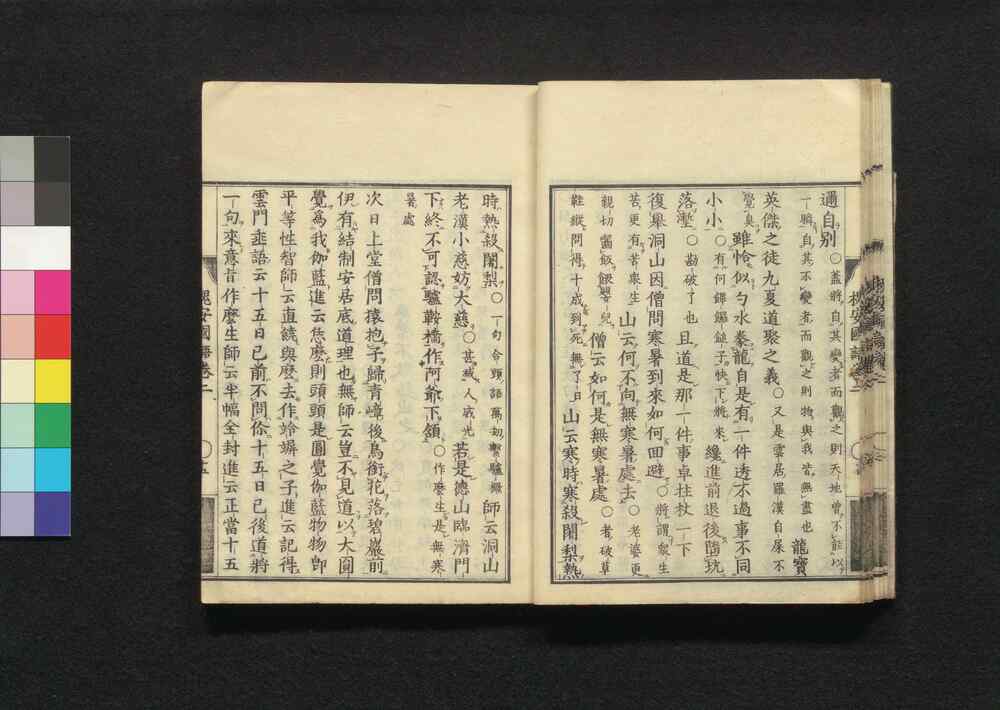 過自別○蓋將自其變者而觀之則天地曾不能以
一瞬自其不變者而觀之則物與我皆無盡也 龍寶
英傑之徒九夏道聚之義○又是雲居羅漢自屎不
覺臭雖恰似勺水養龍自是有一件透不過事不同
小小○有何鐸鎚子快下將來纔進前退後墮坑
落壍○勘破了也且道是那一件事卓拄杖一下
復舉洞山因僧問寒暑到來如何回避○將謂衆生
苦更有苦衆生山云何不向無寒暑處去○老婆更
親切嚼飯餧嬰兒僧云如何是無寒暑處○者破草
鞋縱問得十成到死無了日山云寒時寒殺闍梨熱
時熱殺闍梨○一句合頭語萬劫繫驢橛師云洞山
老漢小慈妨大慈○甚減人威光若是德山臨濟門
下終不可認驢鞍橋作阿爺下頷○作麼生是無寒
暑處
次日上堂僧問猿抱子歸青嶂後鳥銜花落碧巖前
伊有結制安居底道理也無師云豈不見道以大圓
覺爲我伽藍進云恁麼則頭頭是圓覺伽藍物物卽
平等性智師云直饒與麼去作蛉蠙之子進云記得
雲門垂語云十五日已前不問你十五日已後道將
一句來意旨作麼生師云半幅全封進云正當十五
槐安國語卷二